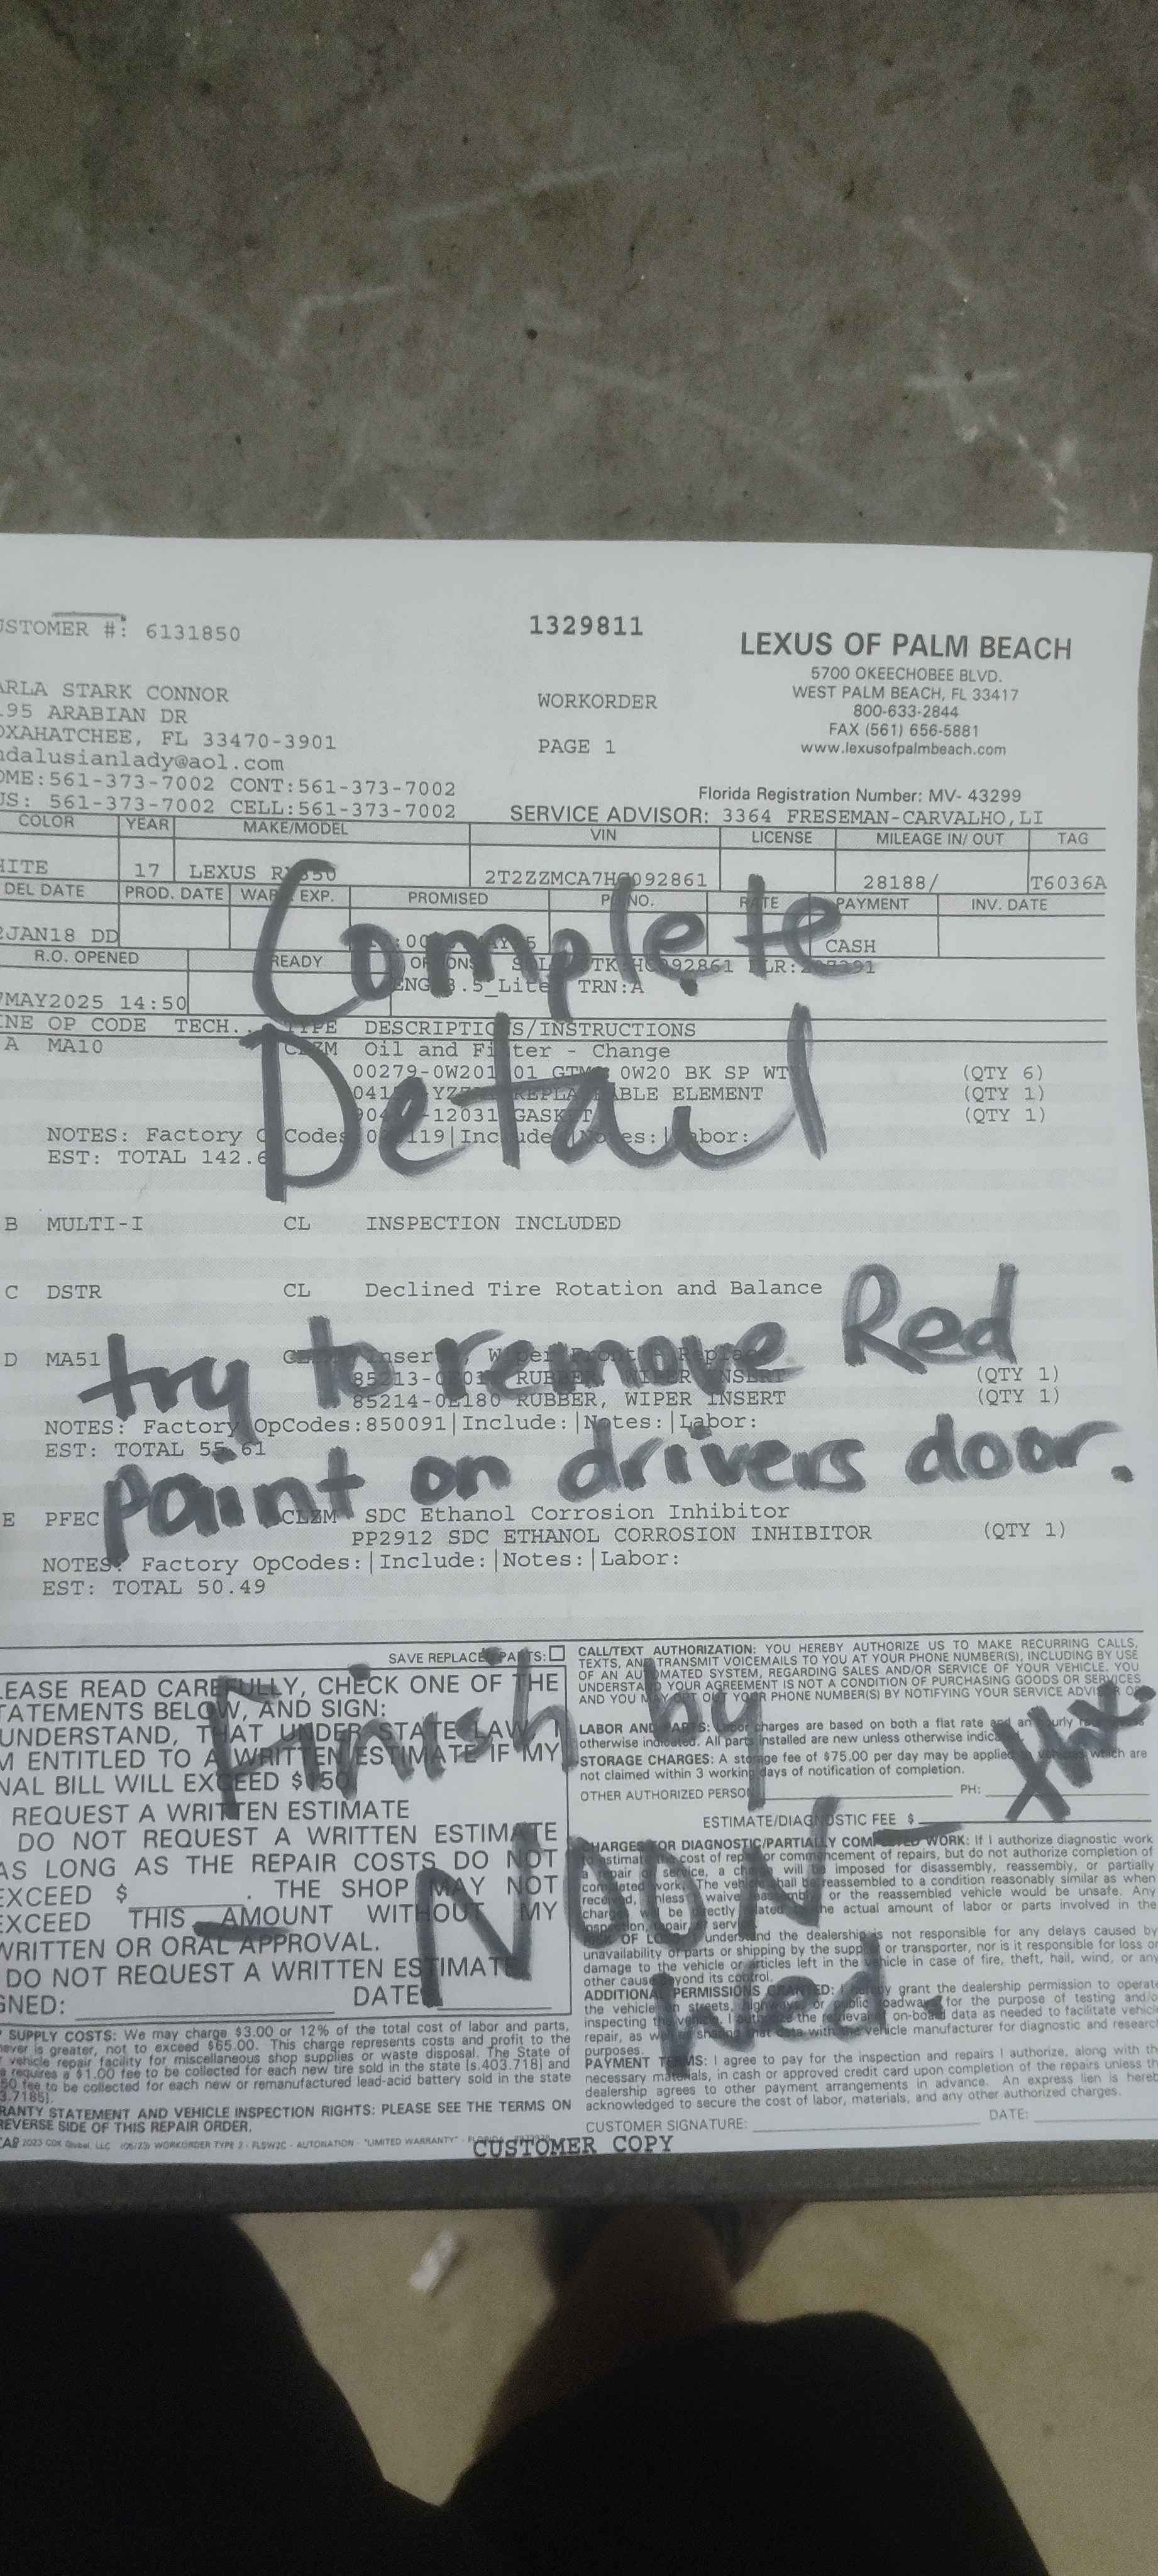 USTOMER #: 6131850
1329811
LEXUS OF PALM BEACH
5700 OKEECHOBEE BLVD.
WEST PALM BEACH, FL 33417
800-633-2844
FAX (561) 656-5881
www.lexusofpalmbeach.com
ARLA STARK CONNOR
195 ARABIAN DR
OXAHATCHEE, FL 33470-3901
ndalusianlady@aol.com
WORKORDER
PAGE 1
OME:561-373-7002 CONT:561-373-7002
US: 561-373-7002 CELL:561-373-7002
Florida Registration Number: MV- 43299
SERVICE ADVISOR: 3364 FRESEMAN-CARVALHO,LI
COLOR YEAR MAKE/MODEL VIN LICENSE MILEAGE IN/ OUT TAG
HITE 17 LEXUS 2T2ZZMCA7HC092861 28188/ T6036A
DEL DATE PROD. DATE WARR. EXP. PROMISED PO NO. RATE PAYMENT INV. DATE
2JAN18 DD CASH
R.O. OPENED READY OPTIONS:
7MAY2025 14:50 TRN:A
INE OP CODE TECH... TYPE DESCRIPTIONS/INSTRUCTIONS
A MA10 Oil and Filter - Change
0W20 BK SP (QTY 6)
REPLACEABLE ELEMENT (QTY 1)
GASKET (QTY 1)
NOTES: Factory
EST: TOTAL
Complete
Detail
B MULTI-I CL INSPECTION INCLUDED
C DSTR CL Declined Tire Rotation and Balance
D MA51
RUBBER, WIPER INSERT (QTY 1)
85214-0E180 RUBBER, WIPER INSERT (QTY 1)
NOTES: Factory OpCodes:850091|Include:|Notes:|Labor:
EST: TOTAL 55.61
try to remove Red
paint on drivers door.
E PFEC CLZM SDC Ethanol Corrosion Inhibitor
PP2912 SDC ETHANOL CORROSION INHIBITOR (QTY 1)
NOTES: Factory OpCodes:|Include:|Notes:|Labor:
EST: TOTAL 50.49
SAVE REPLACED PARTS:
LEASE READ CAREFULLY, CHECK ONE OF THE
TATEMENTS BELOW, AND SIGN:
UNDERSTAND, THAT UNDER STATE LAW, I
M ENTITLED TO A WRITTEN ESTIMATE IF MY
NAL BILL WILL EXCEED $150
REQUEST A WRITTEN ESTIMATE
DO NOT REQUEST A WRITTEN ESTIMATE
AS LONG AS THE REPAIR COSTS DO NOT
EXCEED $ . THE SHOP MAY NOT
EXCEED THIS AMOUNT WITHOUT MY
WRITTEN OR ORAL APPROVAL.
DO NOT REQUEST A WRITTEN ESTIMATE
GNED: DATE
CALL/TEXT AUTHORIZATION: YOU HEREBY AUTHORIZE US TO MAKE RECURRING CALLS,
TEXTS, AND TRANSMIT VOICEMAILS TO YOU AT YOUR PHONE NUMBER(S), INCLUDING BY USE
OF AN AUTOMATED SYSTEM, REGARDING SALES AND/OR SERVICE OF YOUR VEHICLE. YOU
UNDERSTAND YOUR AGREEMENT IS NOT A CONDITION OF PURCHASING GOODS OR SERVICES
AND YOU MAY OPT OUT YOUR PHONE NUMBER(S) BY NOTIFYING YOUR SERVICE ADVISOR
LABOR AND PARTS: Labor charges are based on both a flat rate and an hourly
otherwise indicated. All parts installed are new unless otherwise indicated.
STORAGE CHARGES: A storage fee of $75.00 per day may be applied to vehicles which are
not claimed within 3 working days of notification of completion.
OTHER AUTHORIZED PERSON PH:
ESTIMATE/DIAGNOSTIC FEE $
CHARGES FOR DIAGNOSTIC/PARTIALLY COMPLETED WORK: If I authorize diagnostic work
to estimate the cost of repair or commencement of repairs, but do not authorize completion of
a repair or service, a charge will be imposed for disassembly, reassembly, or partially
completed work. The vehicle shall be reassembled to a condition reasonably similar as when
received, unless I waive reassembly or the reassembled vehicle would be unsafe. Any
charge will be directly related to the actual amount of labor or parts involved in the
inspection, repair, or service.
OF LOSS: I understand the dealership is not responsible for any delays caused by
unavailability of parts or shipping by the supplier or transporter, nor is it responsible for loss or
damage to the vehicle or articles left in the vehicle in case of fire, theft, hail, wind, or any
other cause beyond its control.
ADDITIONAL PERMISSIONS GRANTED: I hereby grant the dealership permission to operate
the vehicle on streets, highways, or public roadways for the purpose of testing and/o
inspecting the vehicle. I authorize the retrieval of on-board data as needed to facilitate vehicle
repair, as well as sharing that data with the vehicle manufacturer for diagnostic and research
purposes.
PAYMENT TERMS: I agree to pay for the inspection and repairs I authorize, along with the
necessary materials, in cash or approved credit card upon completion of the repairs unless th
dealership agrees to other payment arrangements in advance. An express lien is hereb
acknowledged to secure the cost of labor, materials, and any other authorized charges.
CUSTOMER SIGNATURE: DATE:
Finish by
Noon
Wed.
thx.
SUPPLY COSTS: We may charge $3.00 or 12% of the total cost of labor and parts,
never is greater, not to exceed $65.00. This charge represents costs and profit to the
vehicle repair facility for miscellaneous shop supplies or waste disposal. The State of
requires a $1.00 fee to be collected for each new tire sold in the state [s.403.718] and
50 fee to be collected for each new or remanufactured lead-acid battery sold in the state
3.7185].
RANTY STATEMENT AND VEHICLE INSPECTION RIGHTS: PLEASE SEE THE TERMS ON
REVERSE SIDE OF THIS REPAIR ORDER.
CUSTOMER COPY